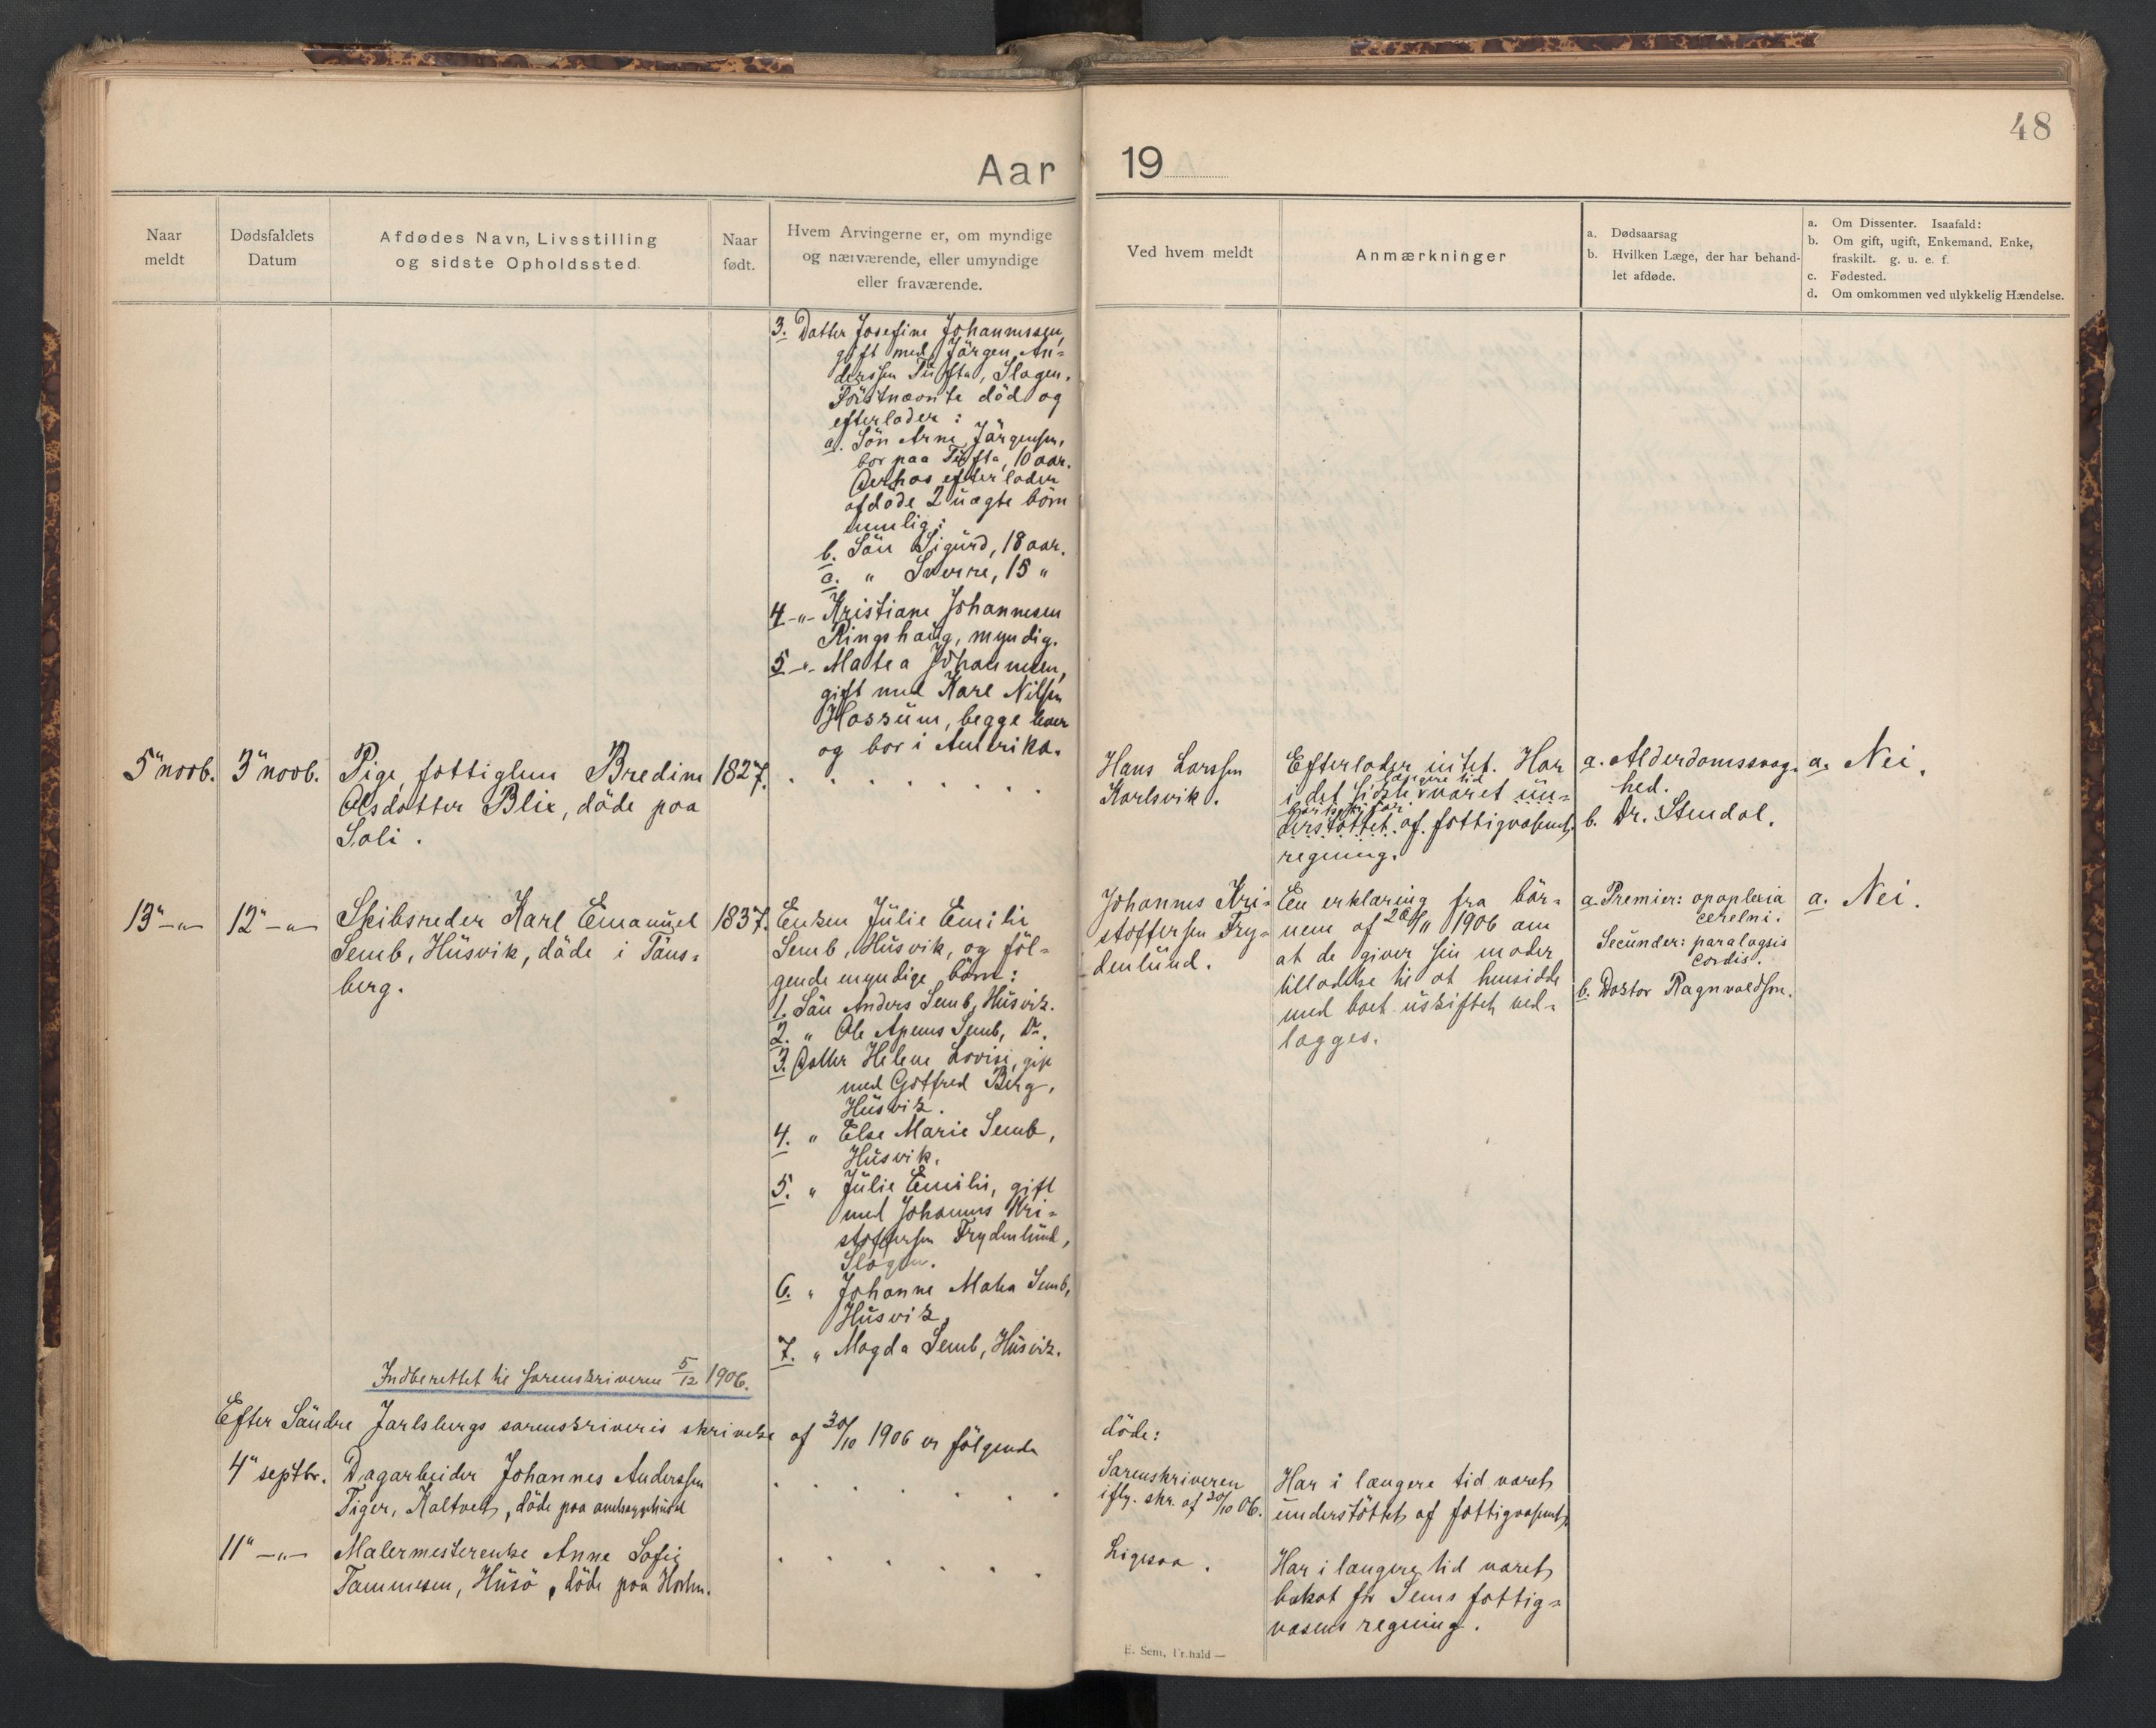 48
Aar 19
Naar
meldt
Dødsfaldets
Datum
Afdødes Navn, Livsstilling
og sidste Opholdssted.
Naar
født.
Hvem Arvingerne er, om myndige
og nærværende, eller umyndige
eller fraværende.
Ved hvem meldt
Anmærkninger
a. Dødsaarsag
b. Hvilken Læge, der har behand-
let afdøde.
a. Om Dissenter. Isaafald:
b. Om gift, ugift, Enkemand, Enke,
fraskilt. g. u. e. f.
c. Fødested.
d. Om omkommen ved ulykkelig Hændelse.
3. Datter Josefine Johannessen,
gift med Jörgen An-
derssen Tufta, Slagen.
Förstnævnte död og
efterlader:
a. Sön Arne Jörgensen,
bor paa Tufta, 10 aar.
Derhos efterlader
afdöde 2 uægte börn
nemlig:
b. Sön Sigurd, 18 aar.
c. " Sverre, 15 "
4 -"- Kristiane Johannesen
Ringshaug, myndig.
5 -"- Matea Johannesen,
gift med Karl Nilsen
Hassum, begge lever
og bor i Amerika.
5" novb.
3" novb.
Pige, fattiglem Bredine
Olsdatter Blix, döde paa
Soli.
1827.
Hans Larssen
Karlsvik.
Efterlader intet. Har
længere tid
i det sidste været un-
derstöttet af fattigvæsenets
regning.
a. Alderdomssvag-
hed.
b. Dr. Stendal.
a. Nei.
13" -"-
12" -"-
Skibsreder Karl Emanuel
Semb, Husvik, döde i Töns-
berg.
1837.
Enken Julie Emilie
Semb, Husvik, og föl-
gende myndige börn:
1. Sön Anders Semb, Husvik.
2. " Ole Apenes Semb, Do.
3. Datter Helene Lovise, gift
med Gotfred Berg,
Husvik.
4. " Else Marie Semb,
Husvik.
5. " Julie Emilie, gift
med Johannes Kri-
stoffersen Frydenlund,
Slagen.
6. " Johanne Matea Semb,
Husvik.
7. " Magda Semb, Husvik.
Johannes Kri-
stoffersen Fry-
denlund.
En erklæring fra bör-
nene af 20/11 1906 om
at de giver sin moder
tilladelse til at hensidde
med boet uskiftet ved-
lægges.
a. Premier: apoplexia
cerebri.
Secunder: paralysis
cordis.
b. Doktor Ragnvaldsen.
a. Nei.
Indberettet til sorenskriveren 5/12 1906.
Efter Söndre Jarlsbergs sorenskriveris skrivelse af 30/10 1906 er fölgende döde:
4" septbr.
Dagarbeider Johannes Anderssen
Tiger, Kaltvet, döde paa
Sorenskriveren
iflg. skr. af 30/10 06.
Har i længere tid været
understöttet af fattigvæsenet.
11" -"-
Malermesterenke Anne Sofie
Tømmesen, Husö, döde paa
Ligesaa.
Har i længere tid været
bekost for Sems fattig-
væsens regning.
E. Sem, Fr.hald —